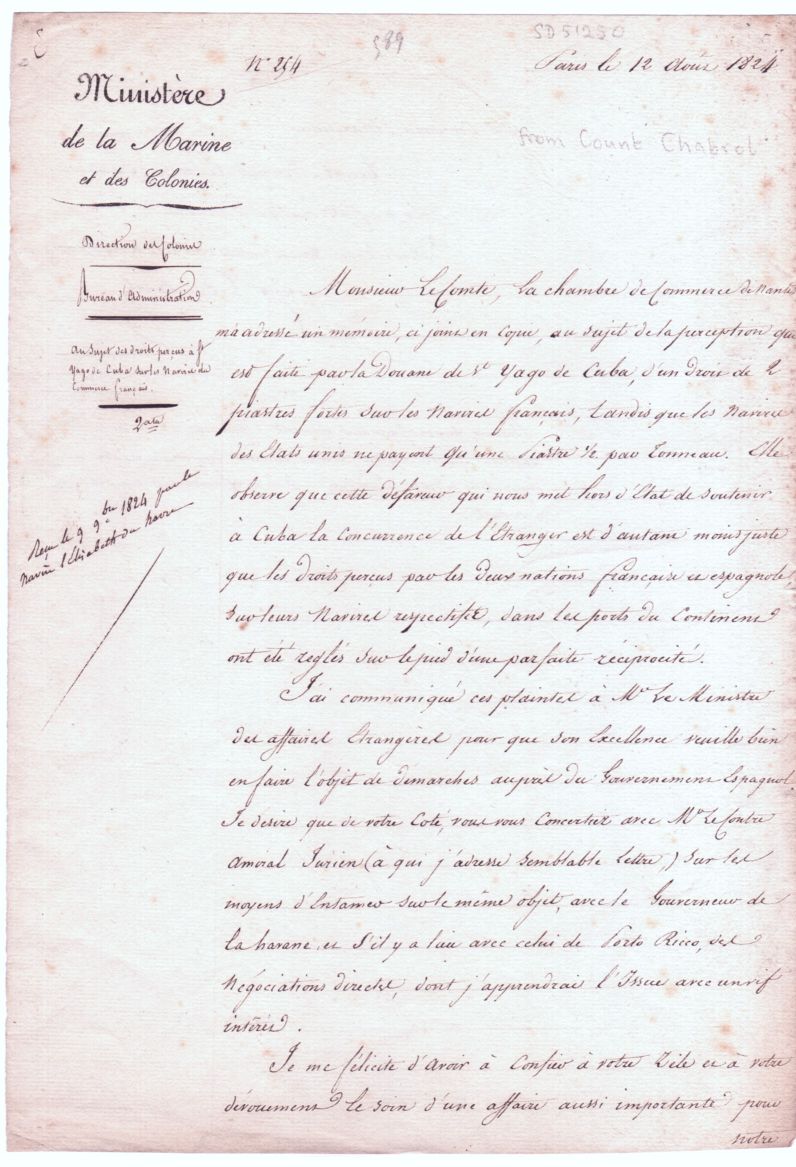 N° 254
589
SD 51230
Paris le 12 Août 1824
Ministère
de la Marine
et des Colonies.
from Count Chabrol
Direction des Colonies
Bureau d'Administration
Au sujet des droits perçus à St
Yago de Cuba sur les Navires du
Commerce français.
2ata
Reçu le 9 9bre 1824 par le
navire l'Elisabeth du havre
Monsieur Le Comte, la chambre de Commerce de Nantes
m'a adressé un mémoire, ci joint en copie, au sujet de la perception, qui
est faite par la Douane de St Yago de Cuba, d'un droit de 2
piastres fortes sur les Navires français, tandis que les Navires
des Etats unis ne payent qu'une Piastre ½ par Tonneau. Elle
observe que cette défaveur qui nous met hors d'Etat de soutenir
à Cuba la Concurrence de l'Etranger est d'autant moins juste
que les droits perçus par les deux nations française et espagnole,
sur leurs Navires respectifs, dans les ports du Continent
ont été réglés sur le pied d'une parfaite réciprocité.
J'ai communiqué ces plaintes à Mr Le Ministre
des affaires Etrangères pour que Son Excellence veuille bien
en faire l'objet de démarches auprès du Gouvernement Espagnol.
Je désire que de votre Coté, vous vous Concertiez avec Mr Le Contre
Amiral Jurien (à qui j'adresse semblable Lettre,) sur les
moyens d'Entamer sur le même objet, avec le Gouverneur de
la havane, et s'il y a lieu avec celui de Porto Ricco, des
Négociations directes, dont j'apprendrai l'Issue avec un vif
intérêt.
Je me félicite d'Avoir à Confier à votre Zèle et à votre
dévouement le soin d'une affaire aussi importante pour
notre